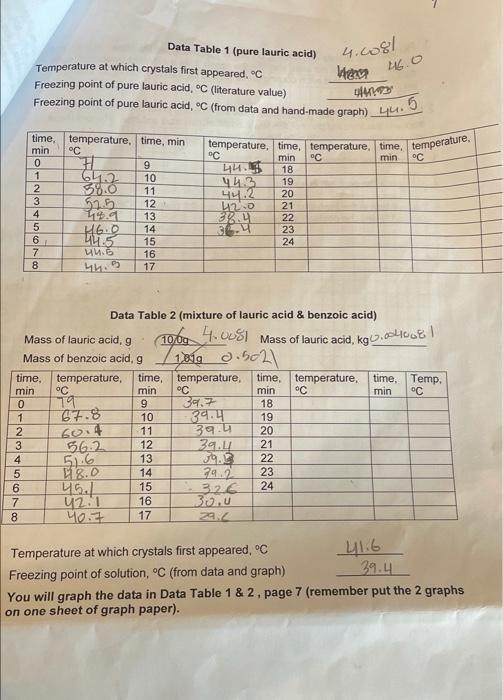 Data Table 1 (pure lauric acid) 4.0081
Temperature at which crystals first appeared, °C 46.0
Freezing point of pure lauric acid, °C (literature value)
Freezing point of pure lauric acid, °C (from data and hand-made graph) 44.5
time, min temperature, °C time, min temperature, °C time, min temperature, °C time, min temperature, °C
0 71 9 44. 18
1 64.2 10 44.3 19
2 58.0 11 44.2 20
3 52.5 12 42.0 21
4 48.9 13 38.4 22
5 46.0 14 36.4 23
6 44.5 15 24
7 44.5 16
8 44.5 17
Data Table 2 (mixture of lauric acid & benzoic acid)
Mass of lauric acid, g 10.0g 4.0081 Mass of lauric acid, kg 0.0040081
Mass of benzoic acid, g 1.01g 0.5021
time, min temperature, °C time, min temperature, °C time, min temperature, °C time, min Temp, °C
0 79 9 39.7 18
1 67.8 10 39.4 19
2 60.4 11 39.4 20
3 56.2 12 39.4 21
4 51.6 13 39.3 22
5 48.0 14 39.2 23
6 45.1 15 32.6 24
7 42.1 16 30.4
8 40.7 17 29.6
Temperature at which crystals first appeared, °C 41.6
Freezing point of solution, °C (from data and graph) 39.4
You will graph the data in Data Table 1 & 2, page 7 (remember put the 2 graphs
on one sheet of graph paper).